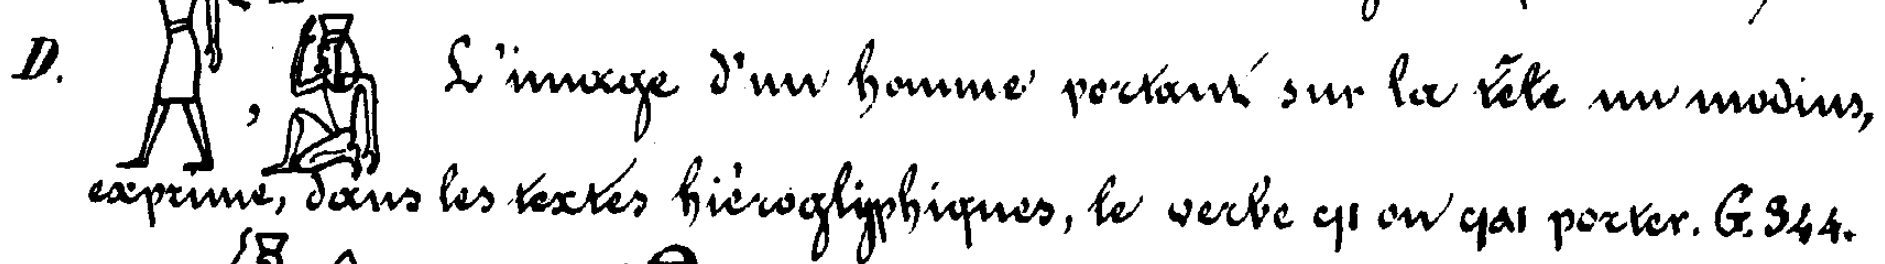 D. , L'image d'un homme portant sur la tête un modius,
exprime, dans les textes hiéroglyphiques, le verbe ϥι ou ϥⲁⲓ porter. G. 344.